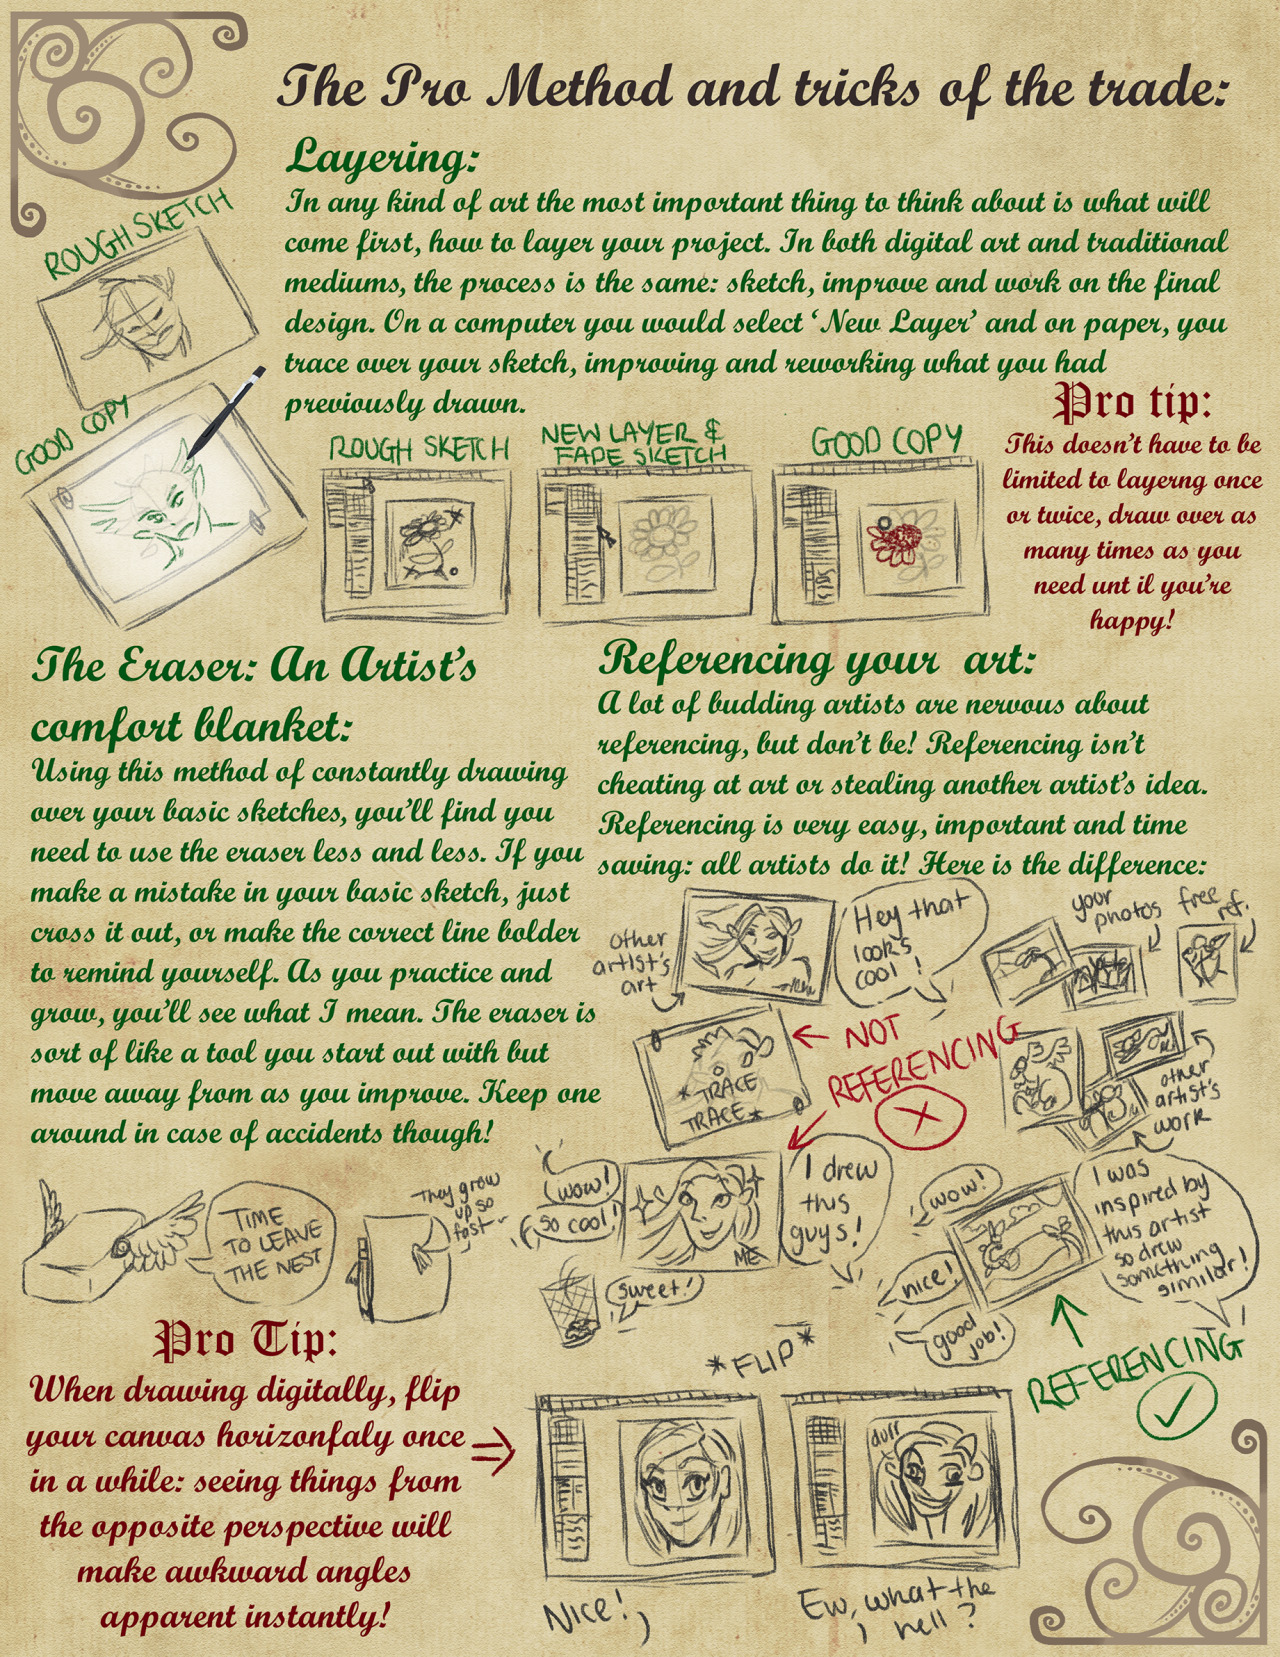 The Pro Method and tricks of the trade:
Layering:
In any kind of art the most important thing to think about is what will
come first, how to layer your project. In both digital art and traditional
mediums, the process is the same: sketch, improve and work on the final
design. On a computer you would select ‘New Layer’ and on paper, you
trace over your sketch, improving and reworking what you had
previously drawn.
ROUGH SKETCH
GOOD COPY
ROUGH SKETCH
NEW LAYER &
FADE SKETCH
GOOD COPY
Pro tip:
This doesn't have to be
limited to layerng once
or twice, draw over as
many times as you
need unt il you're
happy!
The Eraser: An Artist's
comfort blanket:
Using this method of constantly drawing
over your basic sketches, you'll find you
need to use the eraser less and less. If you
make a mistake in your basic sketch, just
cross it out, or make the correct line bolder
to remind yourself. As you practice and
grow, you'll see what I mean. The eraser is
sort of like a tool you start out with but
move away from as you improve. Keep one
around in case of accidents though!
TIME
TO LEAVE
THE NEST
They grow
up so
fast
Referencing your art:
A lot of budding artists are nervous about
referencing, but don't be! Referencing isn't
cheating at art or stealing another artist's idea.
Referencing is very easy, important and time
saving: all artists do it! Here is the difference:
other
artist's
art
Hey that
look's
cool!
NOT
REFERENCING
*TRACE
TRACE*
wow!
so cool!
sweet!
ME
I drew
this
guys!
your
photos
free
ref.
other
artist's
work
wow!
nice!
good
job!
I was
inspired by
this artist
so drew
something
similar!
REFERENCING
Pro Tip:
When drawing digitally, flip
your canvas horizonfaly once
in a while: seeing things from
the opposite perspective will
make awkward angles
apparent instantly!
*FLIP*
durr
NICE!
Ew, what the
hell?